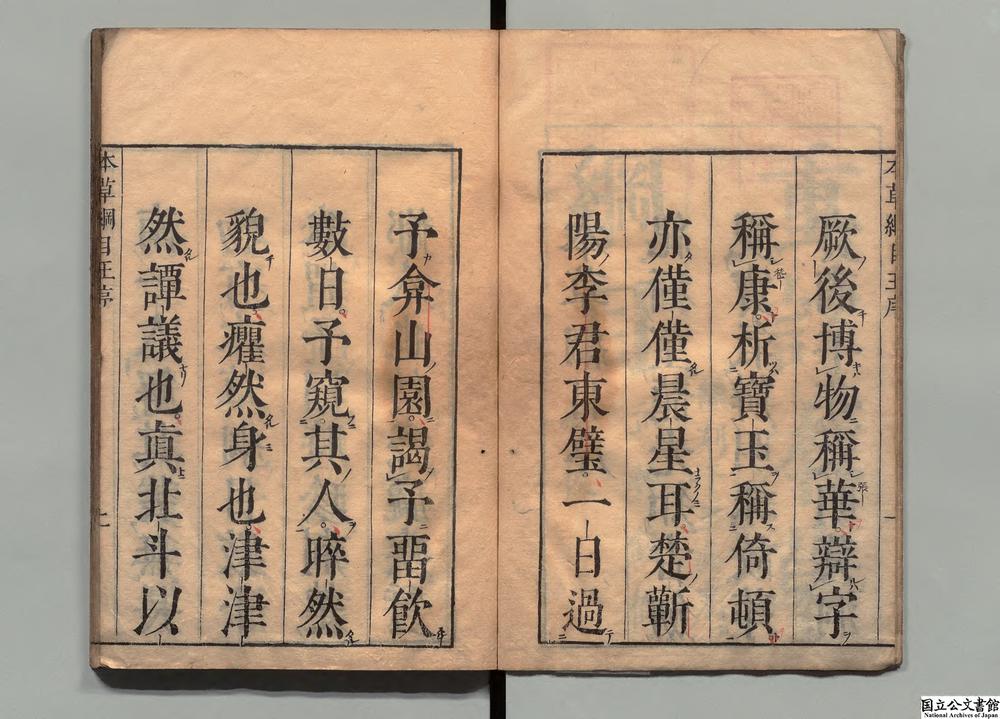 厥後博物稱華辯字
稱康析寶玉稱倚頓
亦僅僅晨星耳楚蘄
陽李君東璧一日過
予弇山園謁予留飲
數日予窺其人睟然
貌也癯然身也津津
然譚議也真北斗以
本草綱目王序
本草綱目王序
国立公文書館
National Archives of Japan